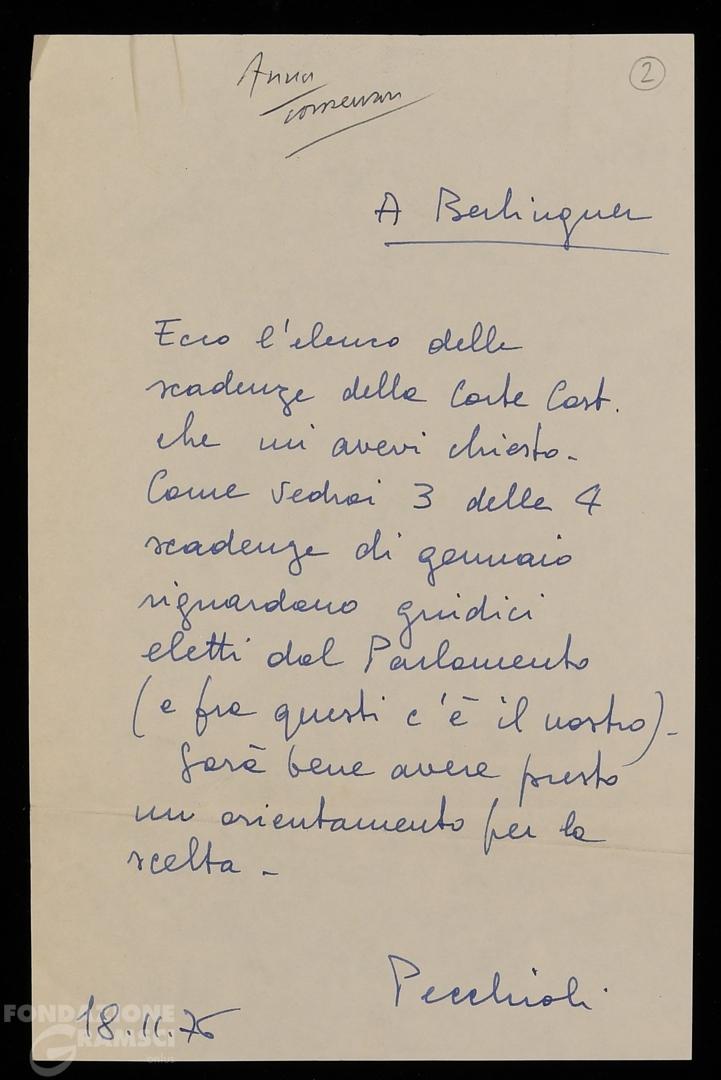 Anna
conservare
2
A Berlinguer
Ecco l'elenco delle
scadenze della Corte Cost.
che mi avevi chiesto -
Come vedrai 3 delle 4
scadenze di gennaio
riguardano giudici
eletti dal Parlamento
(e fra questi c'è il nostro) -
Sarà bene avere presto
un orientamento per la
scelta -
Pecchioli
18.11.76
FONDAZIONE
GRAMSCI
onlus